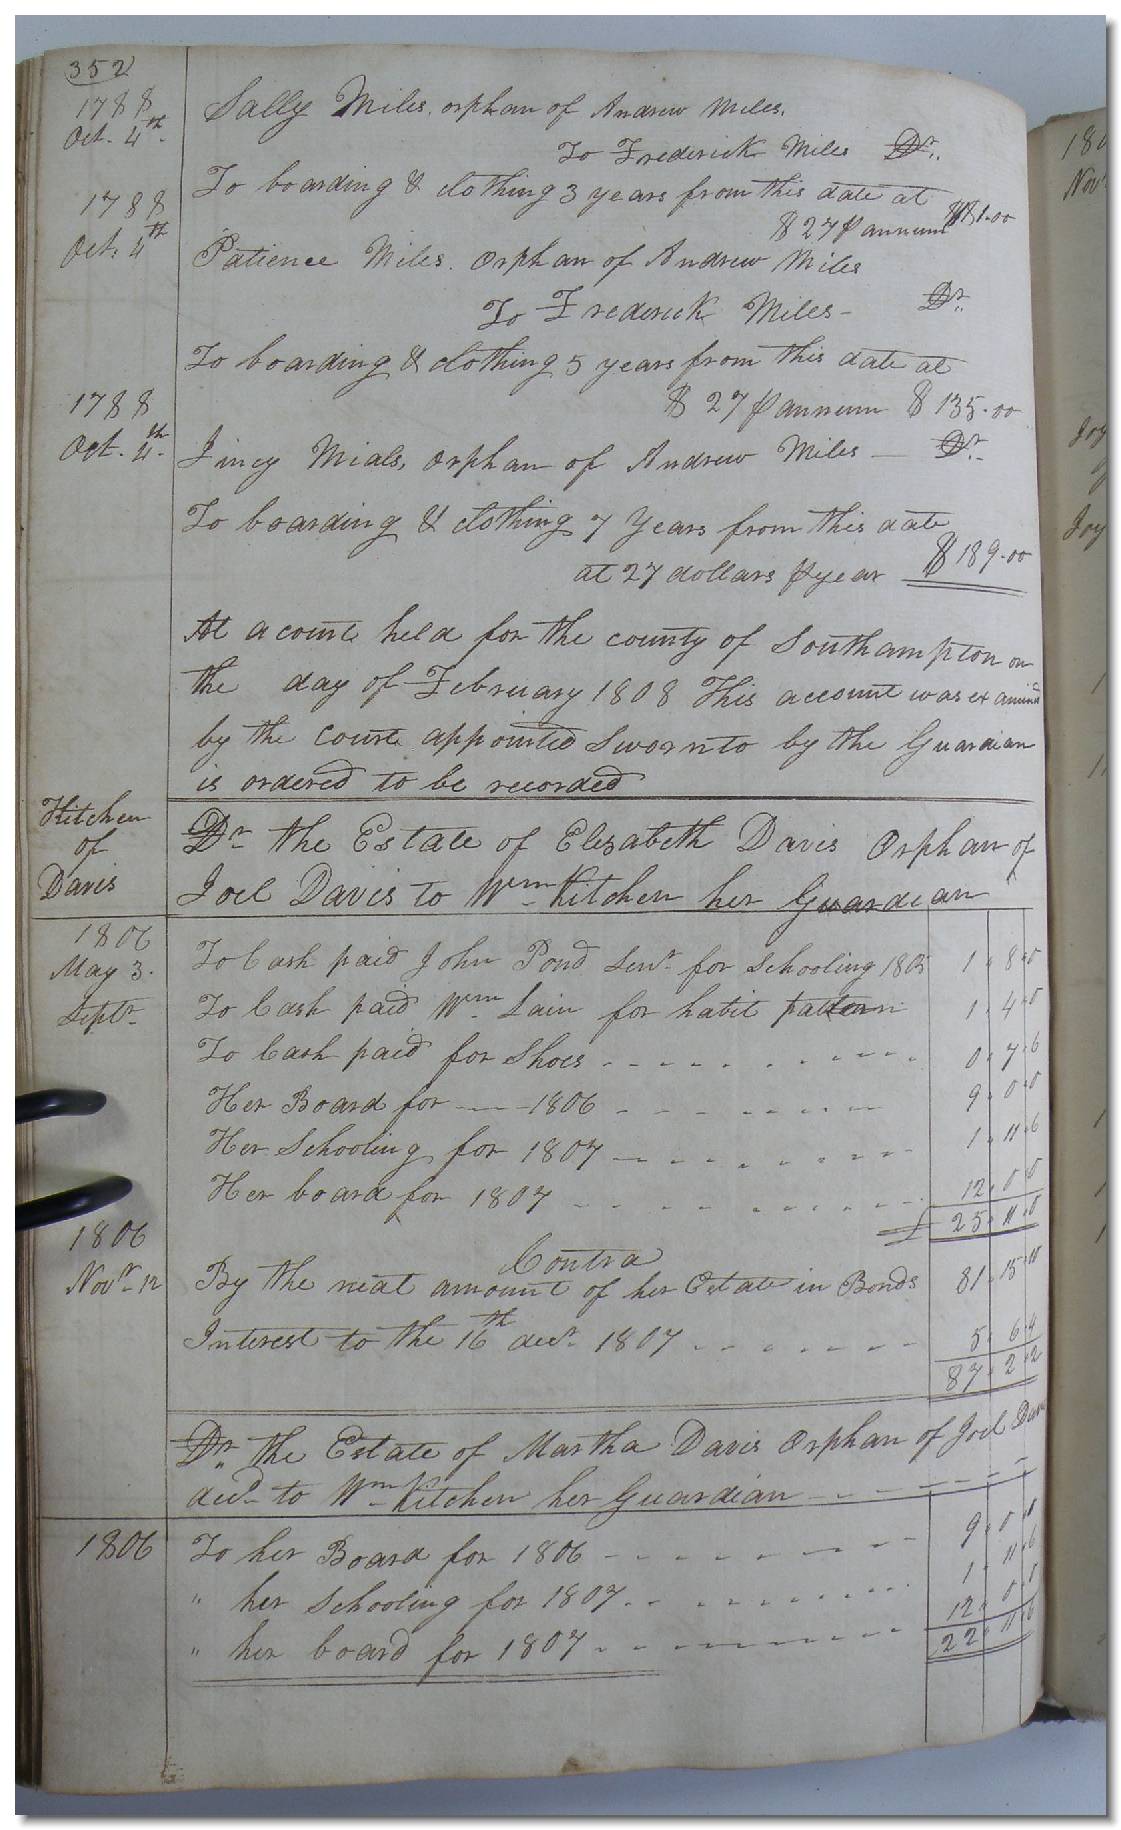 352
1788
Oct. 4th.
Sally Miles, orphan of Andrew Miles.
To Frederick Miles Dr.
To boarding & clothing 3 years from this date at
$27 ⅌ annum $81.00
1788
Oct. 4th
Patience Miles. Orphan of Andrew Miles
To Frederick Miles - Dr.
To boarding & clothing 5 years from this date at
$27 ⅌ annum $135.00
1788
Oct. 4th.
Jincy Mials, Orphan of Andrew Miles - Dr.
To boarding & clothing 7 Years from this date
at 27 dollars ⅌ year $189.00
At a court held for the county of Southampton on
the day of February 1808 This account was examined
by the court appointed Sworn to by the Guardian
is ordered to be recorded
Kitchen
of
Davis
Dr the Estate of Elizabeth Davis Orphan of
Joel Davis to Wm Kitchen her Guardian
1806
May 3. To Cash paid John Pond Senr. for Schooling 1805 1. 8. 0
Septr. To Cash paid Wm Lain for habit pattern 1. 4. 0
To Cash paid for Shoes 0. 7. 6
Her Board for 1806 9. 0. 0
Her Schooling for 1807 1. 11. 6
Her board for 1807 12. 0. 0
£ 25. 11. 0
Contra
1806
Novr. 12 By the neat amount of her Estate in Bonds 81. 15. 10
Interest to the 16th decr. 1807 5. 6. 4
87. 2. 2
Dr. the Estate of Martha Davis Orphan of Joel Davis
decd. to Wm Kitchen her Guardian
1806 To her Board for 1806 9. 0. 0
" her Schooling for 1807 1. 11. 6
" her board for 1807 12. 0. 0
22. 11. 6
180
Nov
Joy
Joy